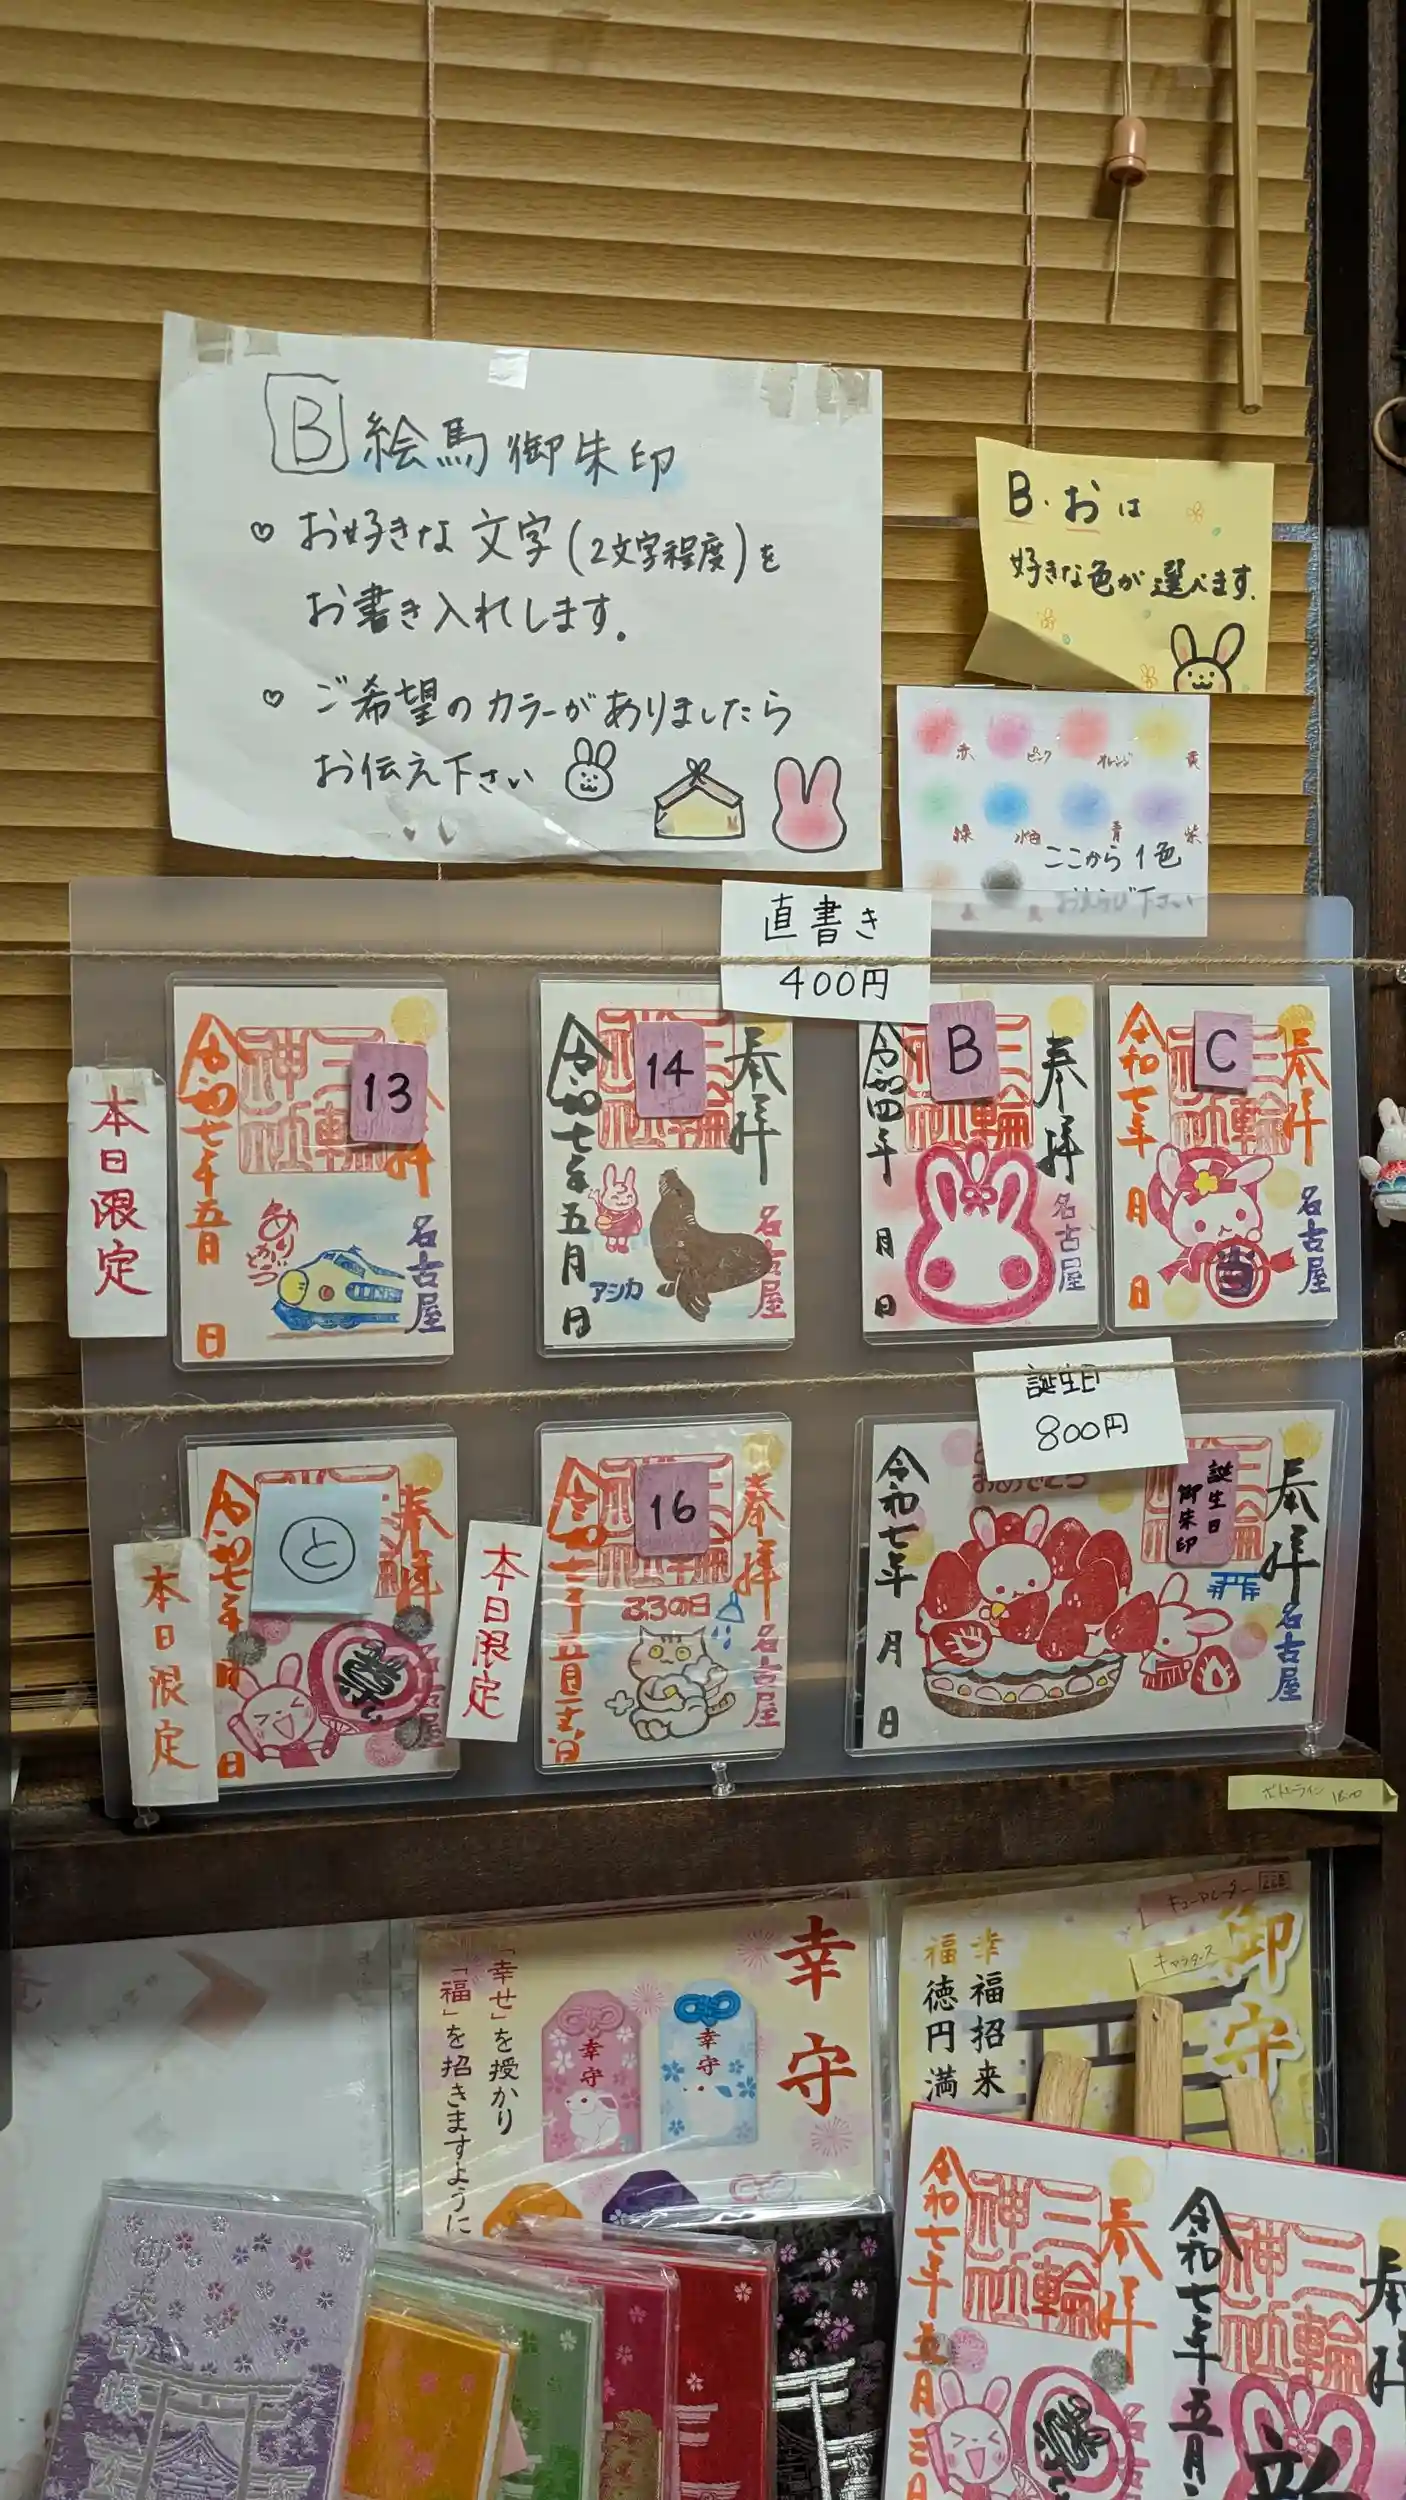 B 絵馬御朱印
♡ お好きな文字(2文字程度)を
お書き入れします。
♡ ご希望のカラーがありましたら
お伝え下さい
B・おは
好きな色が選べます。
赤 ピンク オレンジ 黄
緑 水色 青 紫
ここから1色
おえらび下さい
直書き
400円
本日限定
13
令和七年五月 日
三輪神社
ありがとう
名古屋
14
奉拝
令和七年五月 日
三輪神社
アシカ
名古屋
B
奉拝
令和四年 月 日
三輪神社
名古屋
C
奉拝
令和七年 月 日
三輪神社
当
名古屋
誕生日
800円
本日限定
と
奉拝
令和七年 月 日
名古屋
本日限定
16
奉拝
ふろの日
名古屋
誕生日
御朱印
奉拝
令和七年 月 日
おめでとう
名古屋
幸守
「幸せ」を授かり
「福」を招きますように
幸守
幸守
御守
キャラタース
幸福招来
福徳円満
御朱印帳
奉拝
三輪神社
令和七年五月三日
奉拝
三輪神社
令和七年五月